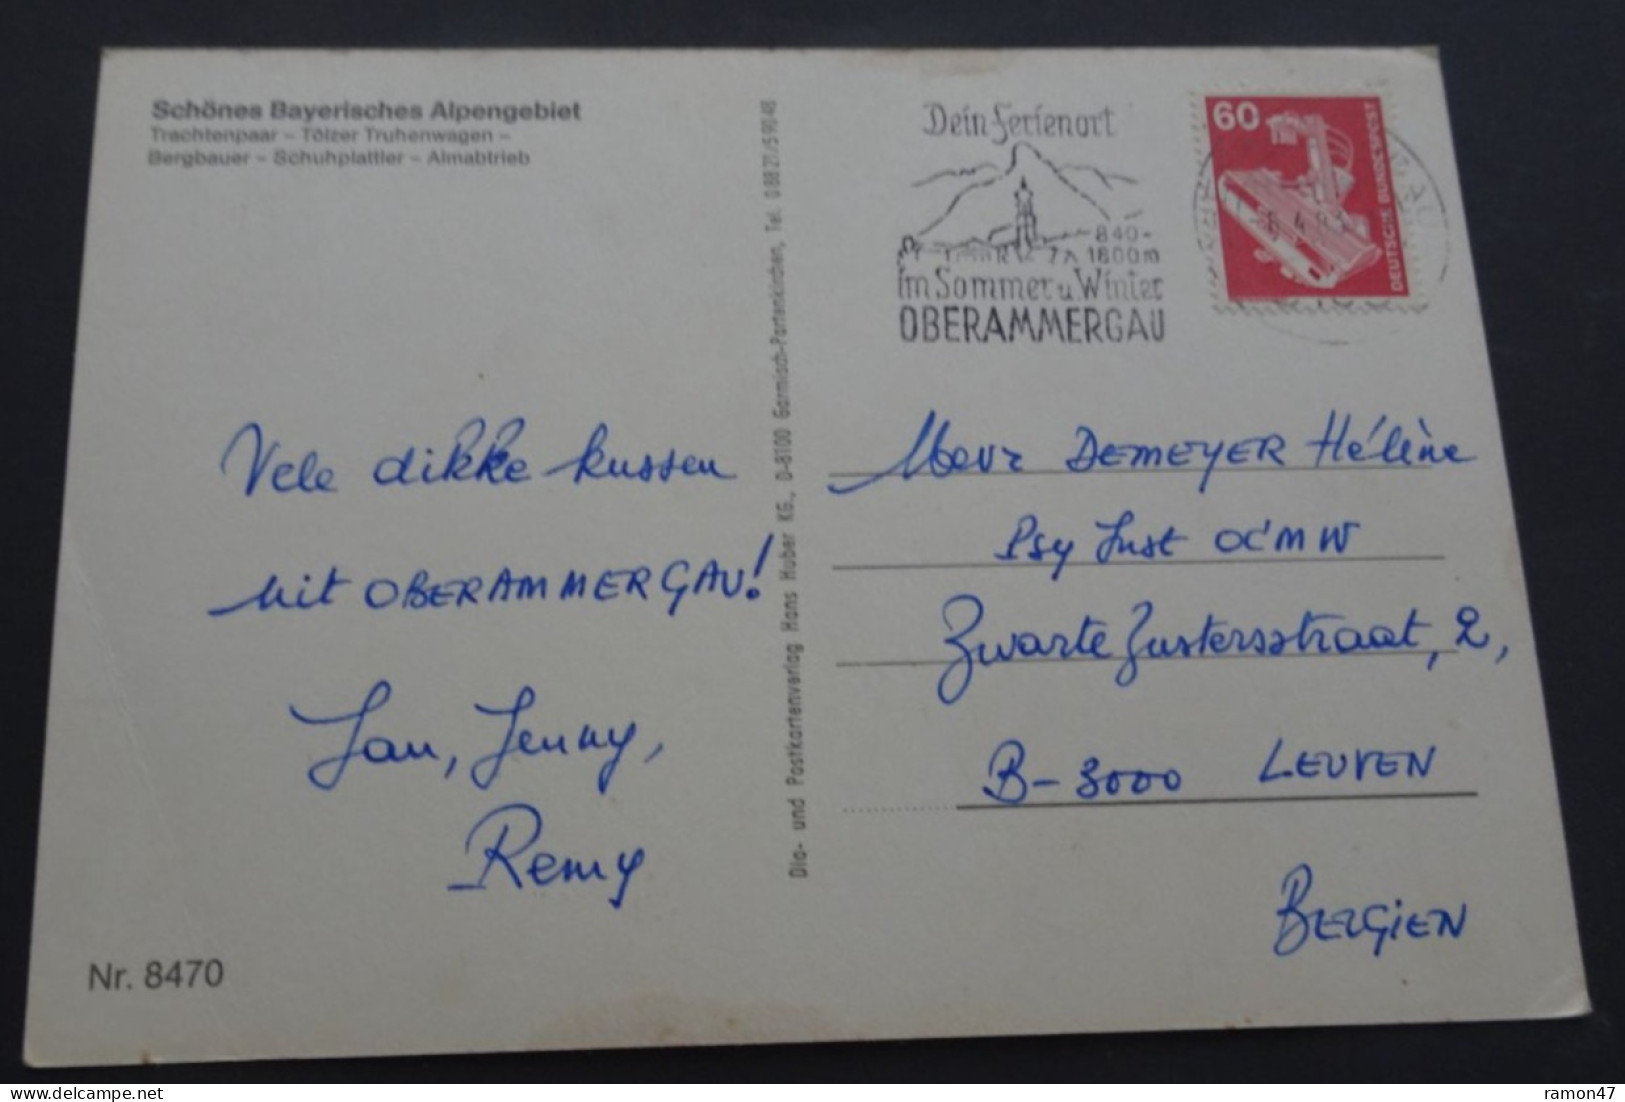 Schönes Bayerisches Alpengebiet
Trachtenpaar – Tölzer Truhenwagen –
Bergbauer – Schuhplattler – Almabtrieb
Vele dikke kussen
uit OBERAMMERGAU!
Jan, Jenny,
Remy
Nr. 8470
Dia- und Postkartenverlag Hans Huber KG., D-8100 Garmisch-Partenkirchen, Tel. 08821/59048
Dein Ferienort
840-
1800m
im Sommer u. Winter
OBERAMMERGAU
60
DEUTSCHE BUNDESPOST
Mevr DEMEYER Hélène
Psy Inst OCMW
Zwarte Zustersstraat, 2,
B-3000 LEUVEN
BELGIEN
ramon47